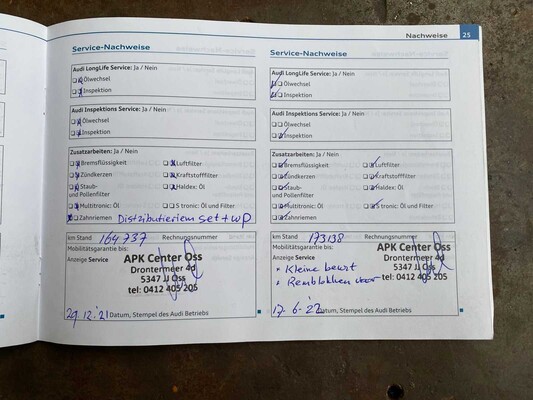 Nachweise 25
Service-Nachweise
Audi LongLife Service: Ja / Nein
Ölwechsel
Inspektion
Audi Inspektions Service: Ja / Nein
Ölwechsel
Inspektion
Zusatzarbeiten: Ja / Nein
Bremsflüssigkeit Luftfilter
Zündkerzen Kraftstofffilter
Staub- Haldex: Öl
und Pollenfilter
Multitronic: Öl S tronic: Öl und Filter
Zahnriemen Distributieriem set + wp
km Stand 164737 Rechnungsnummer
Mobilitätsgarantie bis:
Anzeige Service
APK Center Oss
Drontermeer 4d
5347 JJ Oss
tel: 0412 405 205
29.12.'21 Datum, Stempel des Audi Betriebs
Service-Nachweise
Audi LongLife Service: Ja / Nein
Ölwechsel
Inspektion
Audi Inspektions Service: Ja / Nein
Ölwechsel
Inspektion
Zusatzarbeiten: Ja / Nein
Bremsflüssigkeit Luftfilter
Zündkerzen Kraftstofffilter
Staub- Haldex: Öl
und Pollenfilter
Multitronic: Öl S tronic: Öl und Filter
Zahnriemen
km Stand 173138 Rechnungsnummer
Mobilitätsgarantie bis:
Anzeige Service
APK Center Oss
Drontermeer 4d
5347 JJ Oss
tel: 0412 405 205
* Kleine beurt
* Remblokken voor
17-6-'22 Datum, Stempel des Audi Betriebs